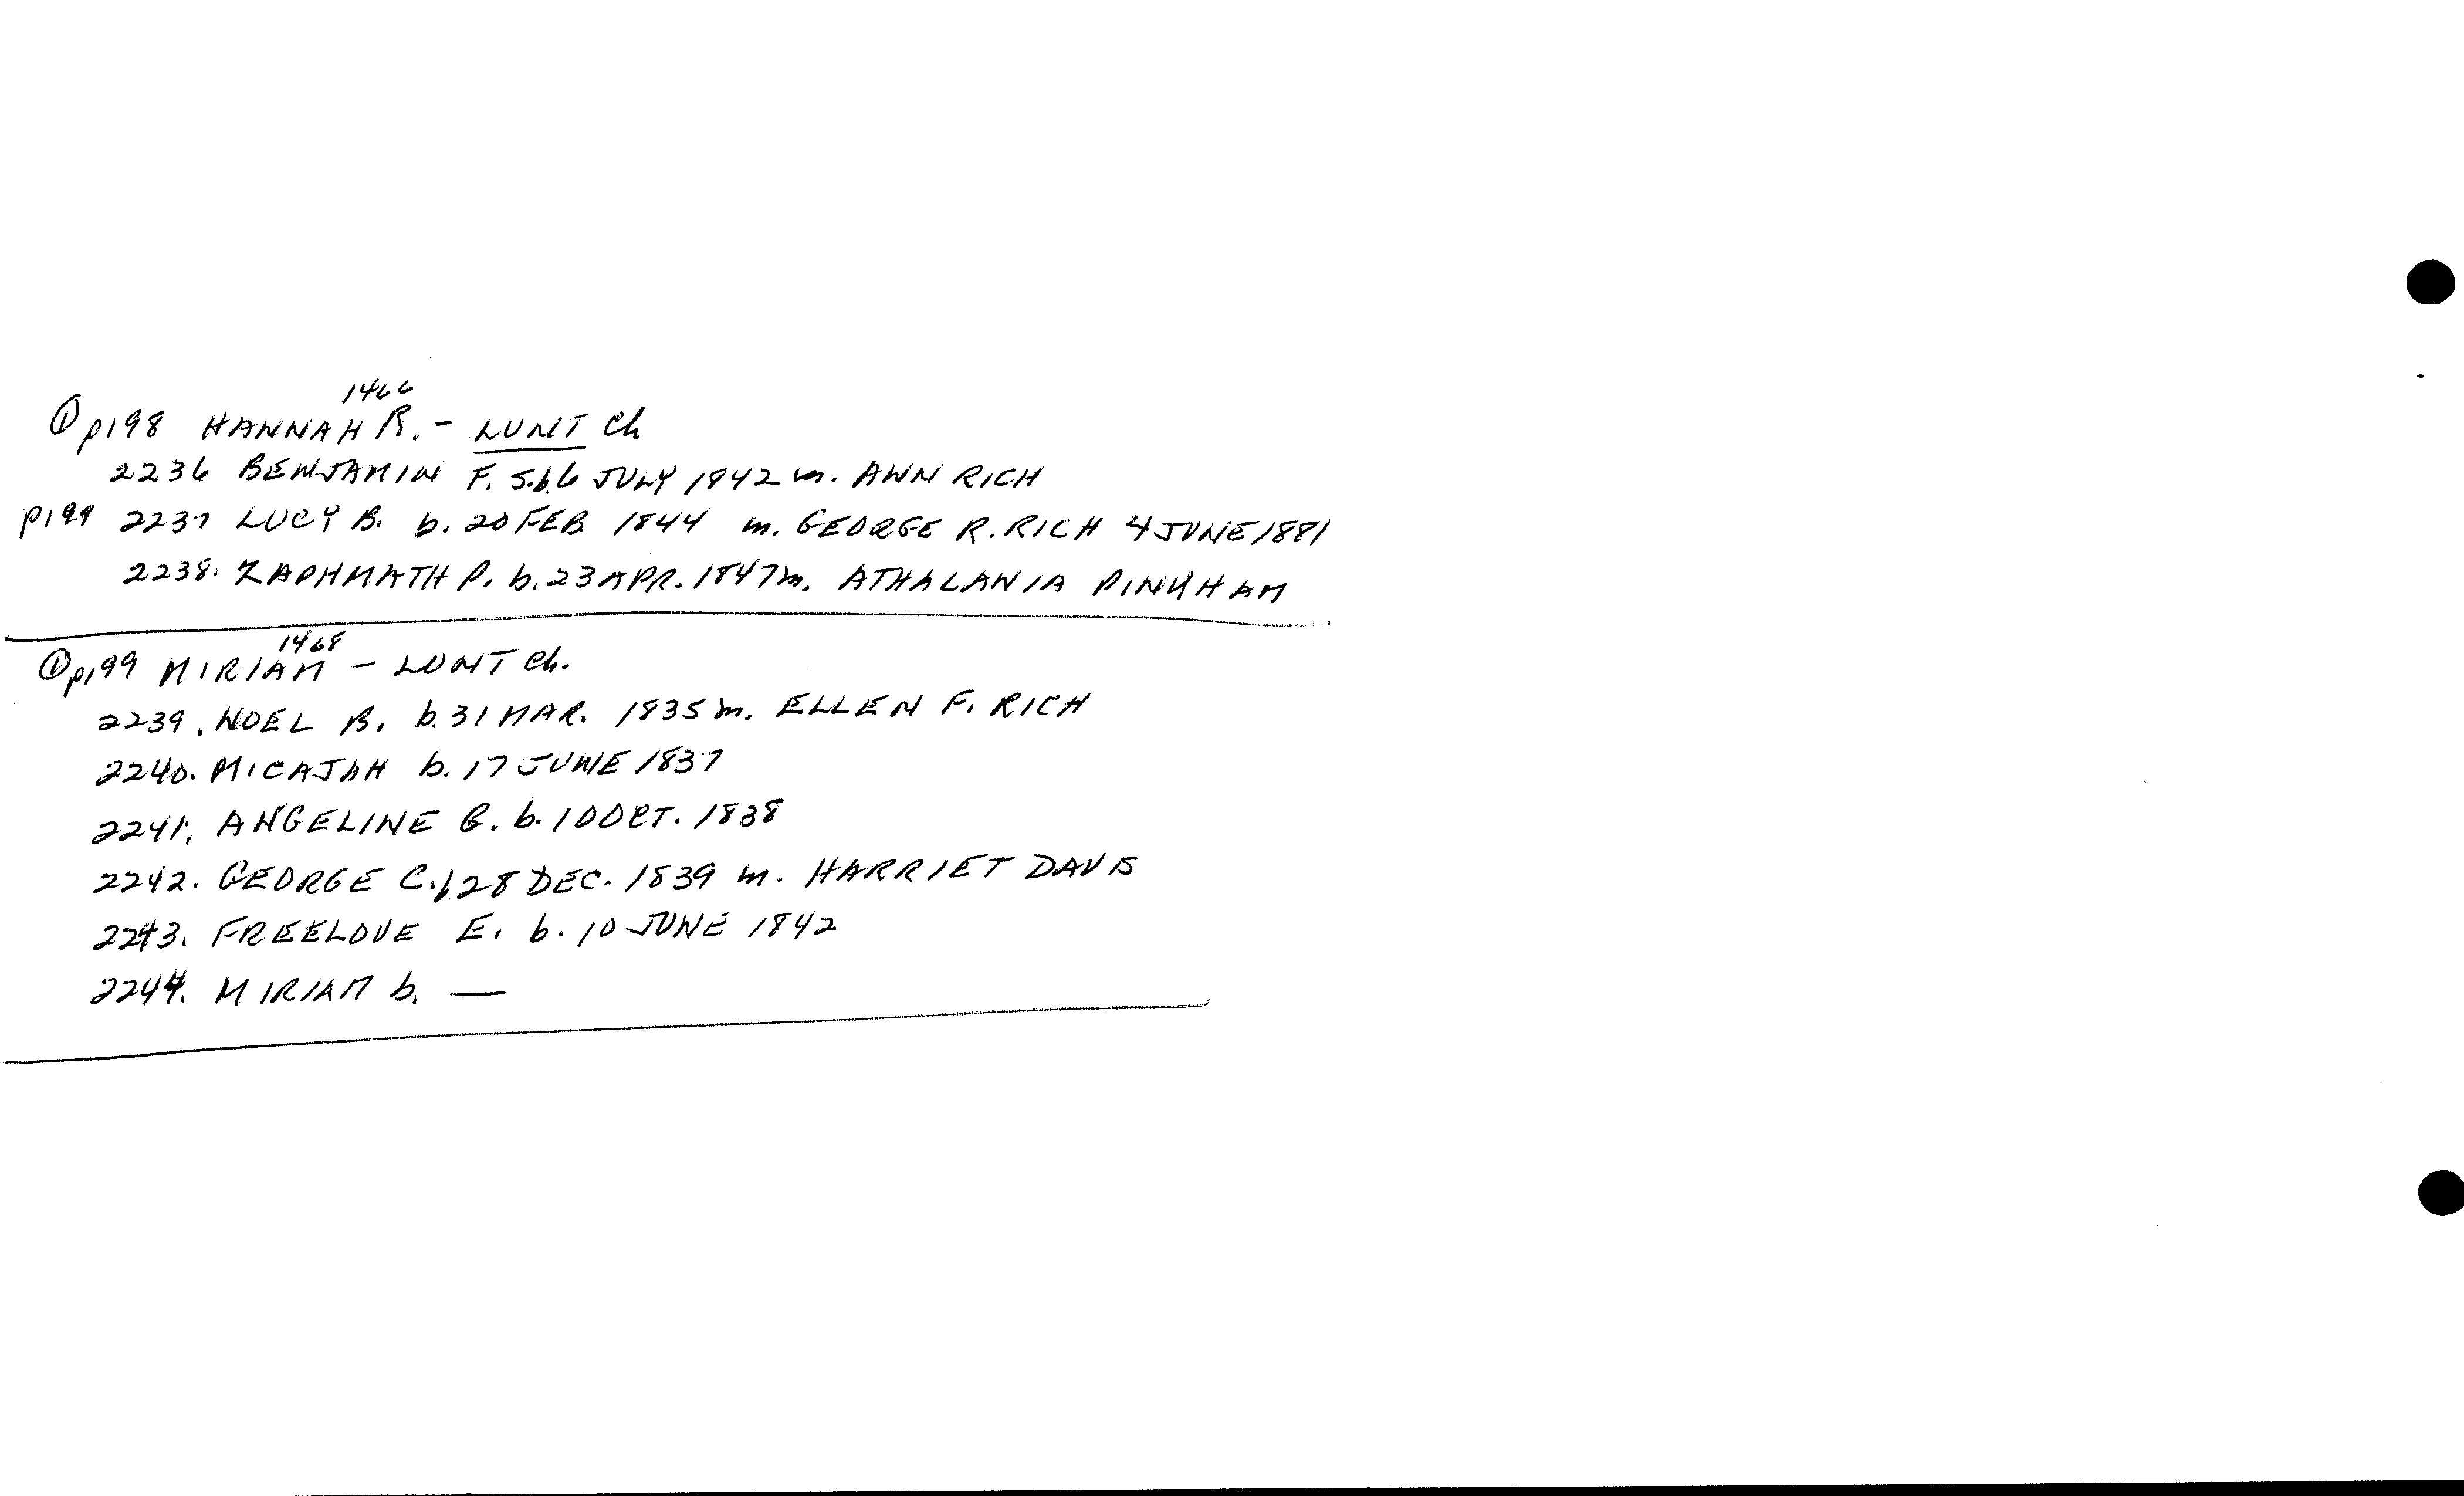 ① p198 HANNAH R.¹⁴⁶⁶ - LUNT Ch
2236 BENJAMIN F. S. b. 6 JULY 1842 m. ANN RICH
p199 2237 LUCY B. b. 20 FEB 1844 m. GEORGE R. RICH 4 JUNE 1881
2238. ZAPHMATH P. b. 23 APR. 1847 m. ATHALANIA PINKHAM
① p199 MIRIAM¹⁴⁶⁸ - LUNT Ch.
2239. NOEL B. b. 31 MAR. 1835 m. ELLEN F. RICH
2240. MICAJAH b. 17 JUNE 1837
2241. ANGELINE G. b. 10 OCT. 1838
2242. GEORGE C. b 28 DEC. 1839 m. HARRIET DAVIS
2243. FREELOVE E. b. 10 JUNE 1842
2244. MIRIAM b. —